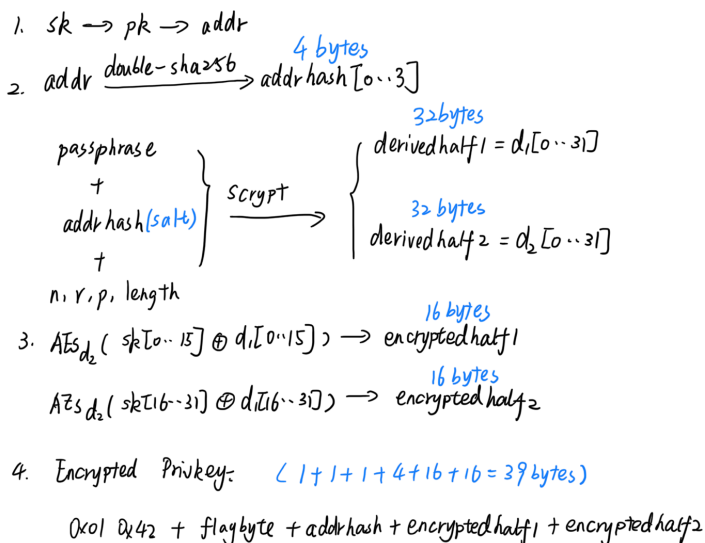 1. sk → pk → addr
4 bytes
2. addr double-sha256 → addrhash[0..3]
32bytes
passphrase
derivedhalf1 = d₁[0..31]
+
addrhash(salt)
scrypt
32 bytes
derivedhalf2 = d₂[0..31]
+
n, r, p, length
16 bytes
3. AES d₂ ( sk[0..15] ⊕ d₁[0..15] ) → encryptedhalf1
16 bytes
AES d₂ ( sk[16..31] ⊕ d₁[16..31] ) → encryptedhalf2
4. Encrypted Privkey: (1+1+1+4+16+16=39bytes)
0x01 0x42 + flagbyte + addrhash + encryptedhalf1 + encryptedhalf2